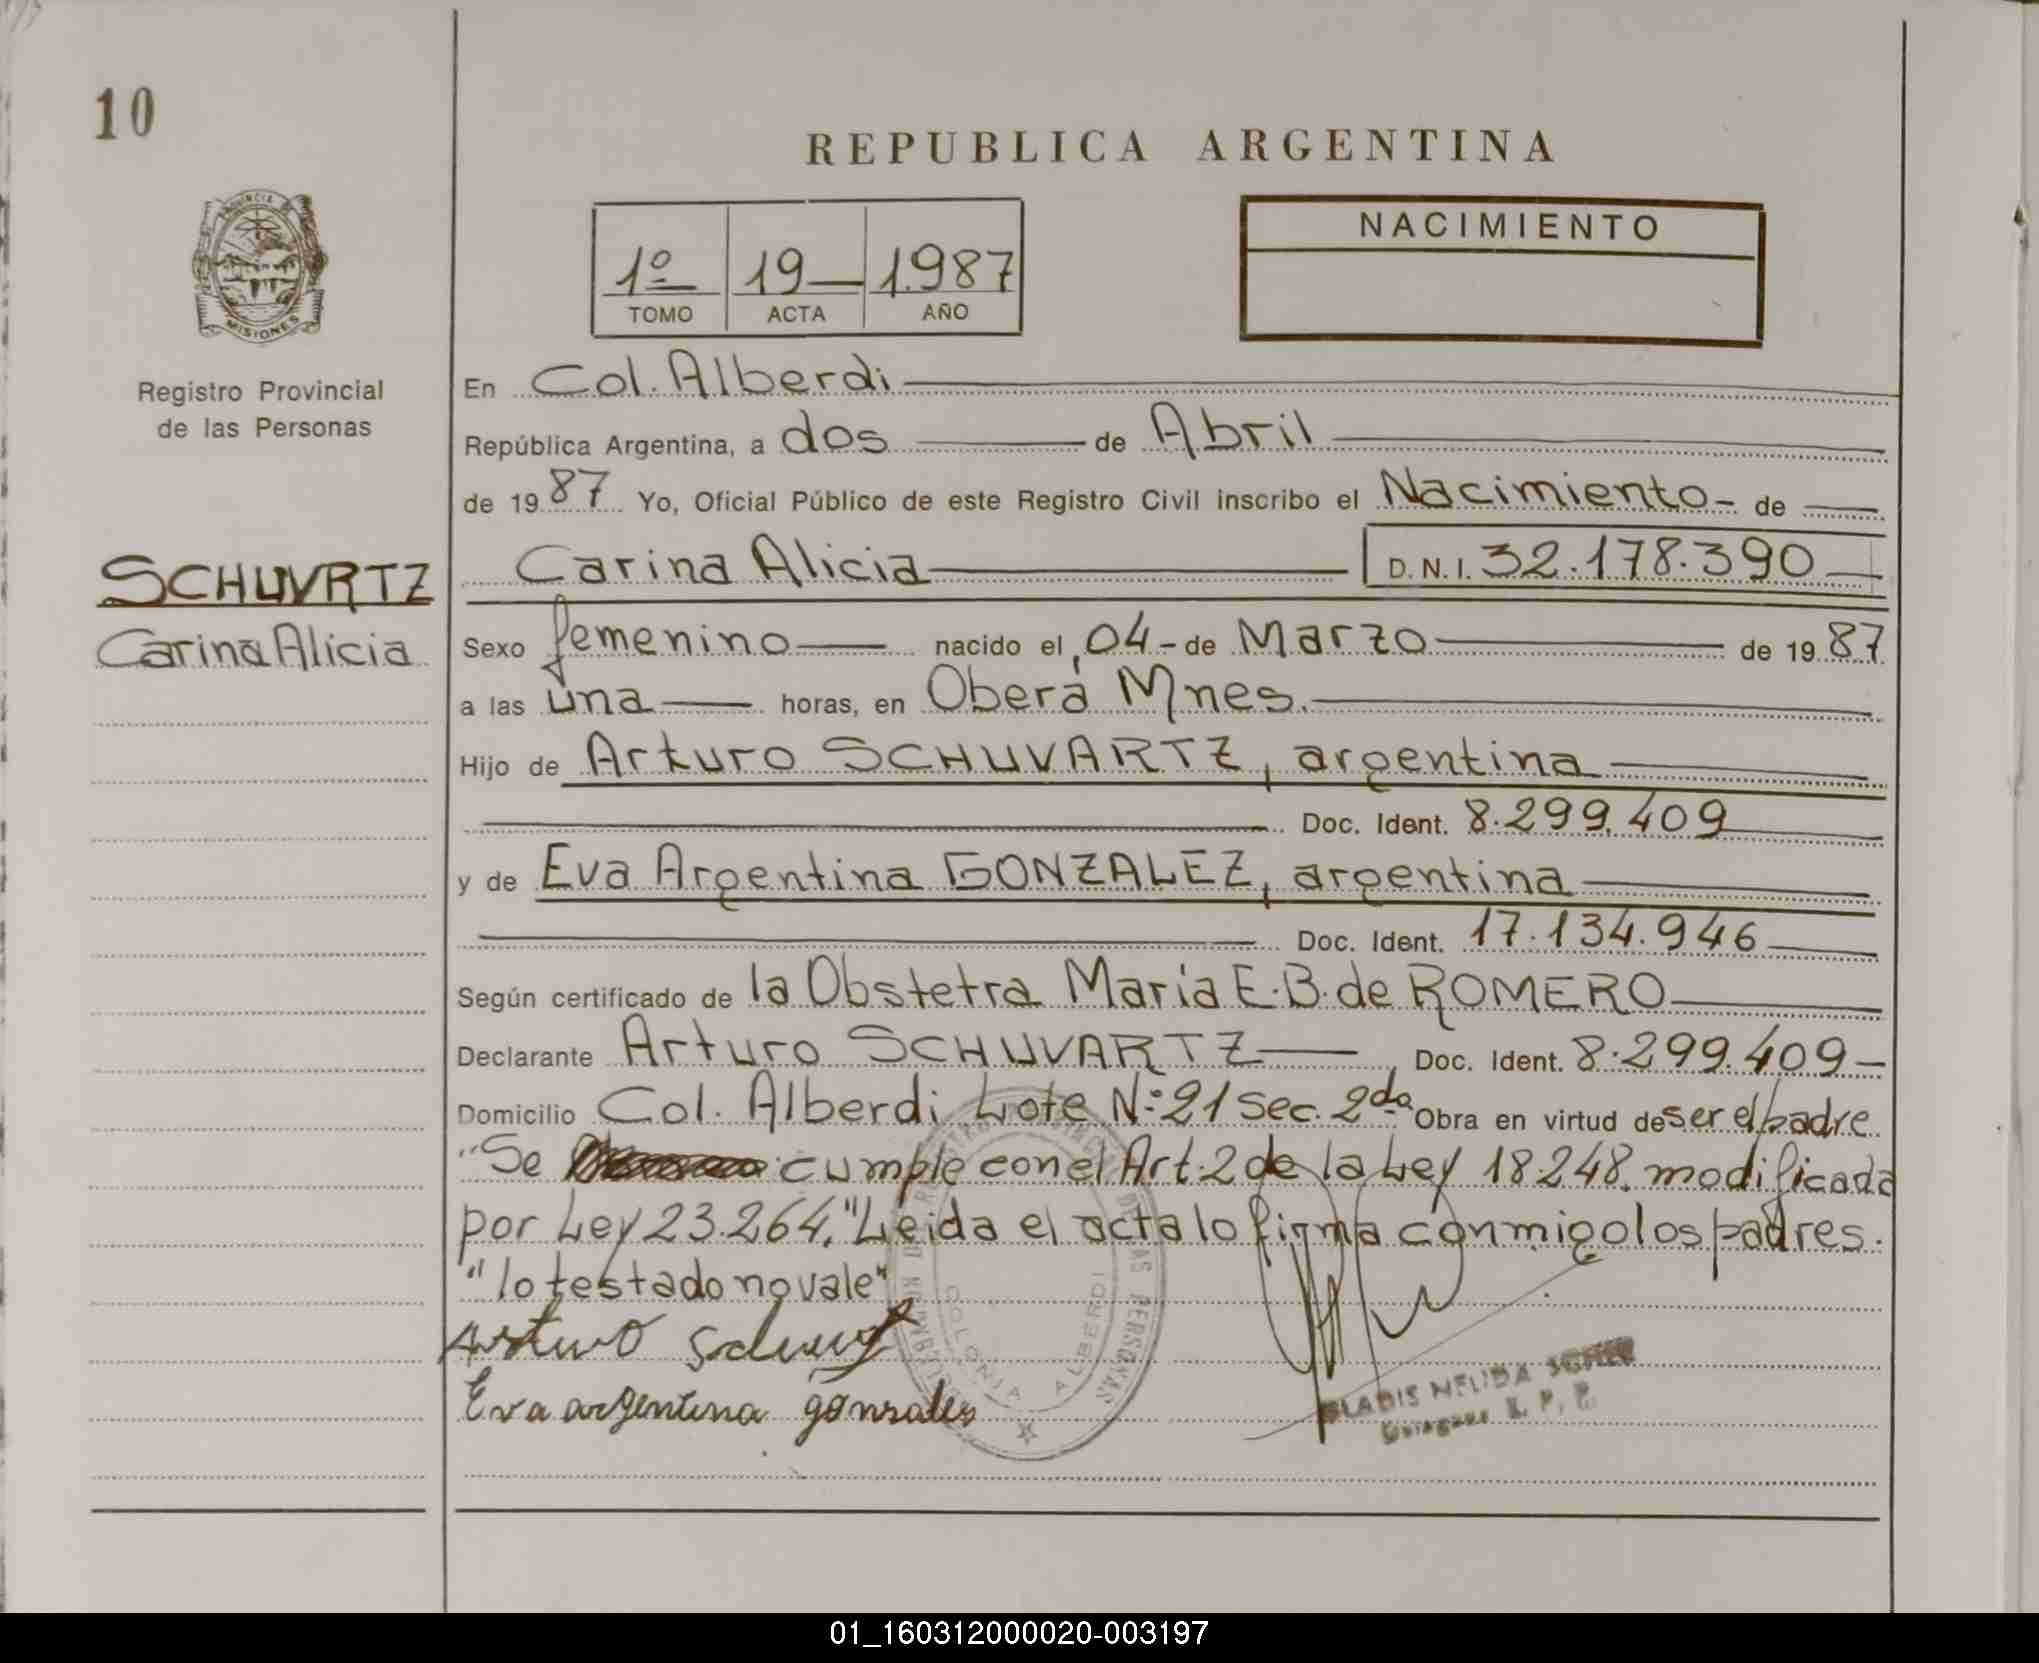 10
REPUBLICA ARGENTINA
PROVINCIA DE
MISIONES
Registro Provincial
de las Personas
1º 19 1.987
TOMO ACTA AÑO
NACIMIENTO
SCHUVRTZ
Carina Alicia
En Col. Alberdi
República Argentina, a dos de Abril
de 19 87 Yo, Oficial Público de este Registro Civil inscribo el Nacimiento - de
Carina Alicia D.N.I. 32.178.390
Sexo femenino nacido el 04 - de Marzo de 19 87
a las una horas, en Oberá Mnes.
Hijo de Arturo SCHUVARTZ, argentina
Doc. Ident. 8.299.409
y de Eva Argentina GONZALEZ, argentina
Doc. Ident. 17.134.946
Según certificado de la Obstetra Maria E.B. de ROMERO
Declarante Arturo SCHUVARTZ Doc. Ident. 8.299.409 -
Domicilio Col. Alberdi Lote Nº 21 Sec. 2da Obra en virtud de ser el padre
"Se cumple con el Art. 2 de la Ley 18.248. modificada
por Ley 23.264." Leida el acta lo firma conmigo los padres.
"lo testado no vale"
Arturo
Eva argentina gonzales
COLONIA ALBERDI
GLADIS NELIDA
R. P. P.
01_160312000020-003197